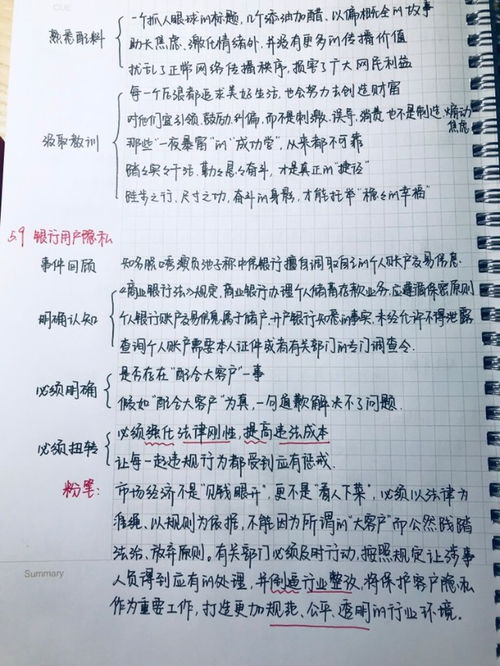 CUE
一个抓人眼球的标题，几个添油加醋、以偏概全的故事
熟悉配料
助长焦虑、激化情绪外，并没有更多的传播价值
扰乱了正常网络传播秩序，损害了广大网民利益
每一个后浪都追求美好生活，也会努力去创造财富
对他们宜引领、鼓励、纠偏，而不是刺激、误导、消费，也不是制造、煽动焦虑
汲取教训
那些"一夜暴富"的"成功学"，从来都不可靠
踏踏实实干活、勤勤恳恳奋斗，才是真正的"捷径"
跬步之行、尺寸之功，奋斗的身影，才能托举"稳稳的幸福"
5.9 银行用户隐私
事件回顾 知名脱口秀演员池子称中信银行擅自调取自己的个人账户交易信息.
《商业银行法》规定，商业银行办理个人储蓄存款业务，应遵循保密原则
明确认知 个人银行账户交易信息属于储户、开户银行知悉的事实，未经允许不得泄露
查询个人账户需要本人证件或者有关部门的专门调查令.
必须明确 是否存在"配合大客户"一事
假如"配合大客户"为真，一句道歉解决不了问题.
必须扭转 必须强化法律刚性，提高违法成本
让每一起违规行为都受到应有惩戒.
粉笔：市场经济不是"见钱眼开"，更不是"看人下菜"，必须以法律为
准绳、以规则为依据，不能因为所谓的"大客户"而公然践踏
法治、放弃原则。有关部门必须及时行动，按照规定让涉事
人员得到应有的处理，并倒逼行业整改，将保护客户隐私
作为重要工作，打造更加规范、公平、透明的行业环境。
Summary